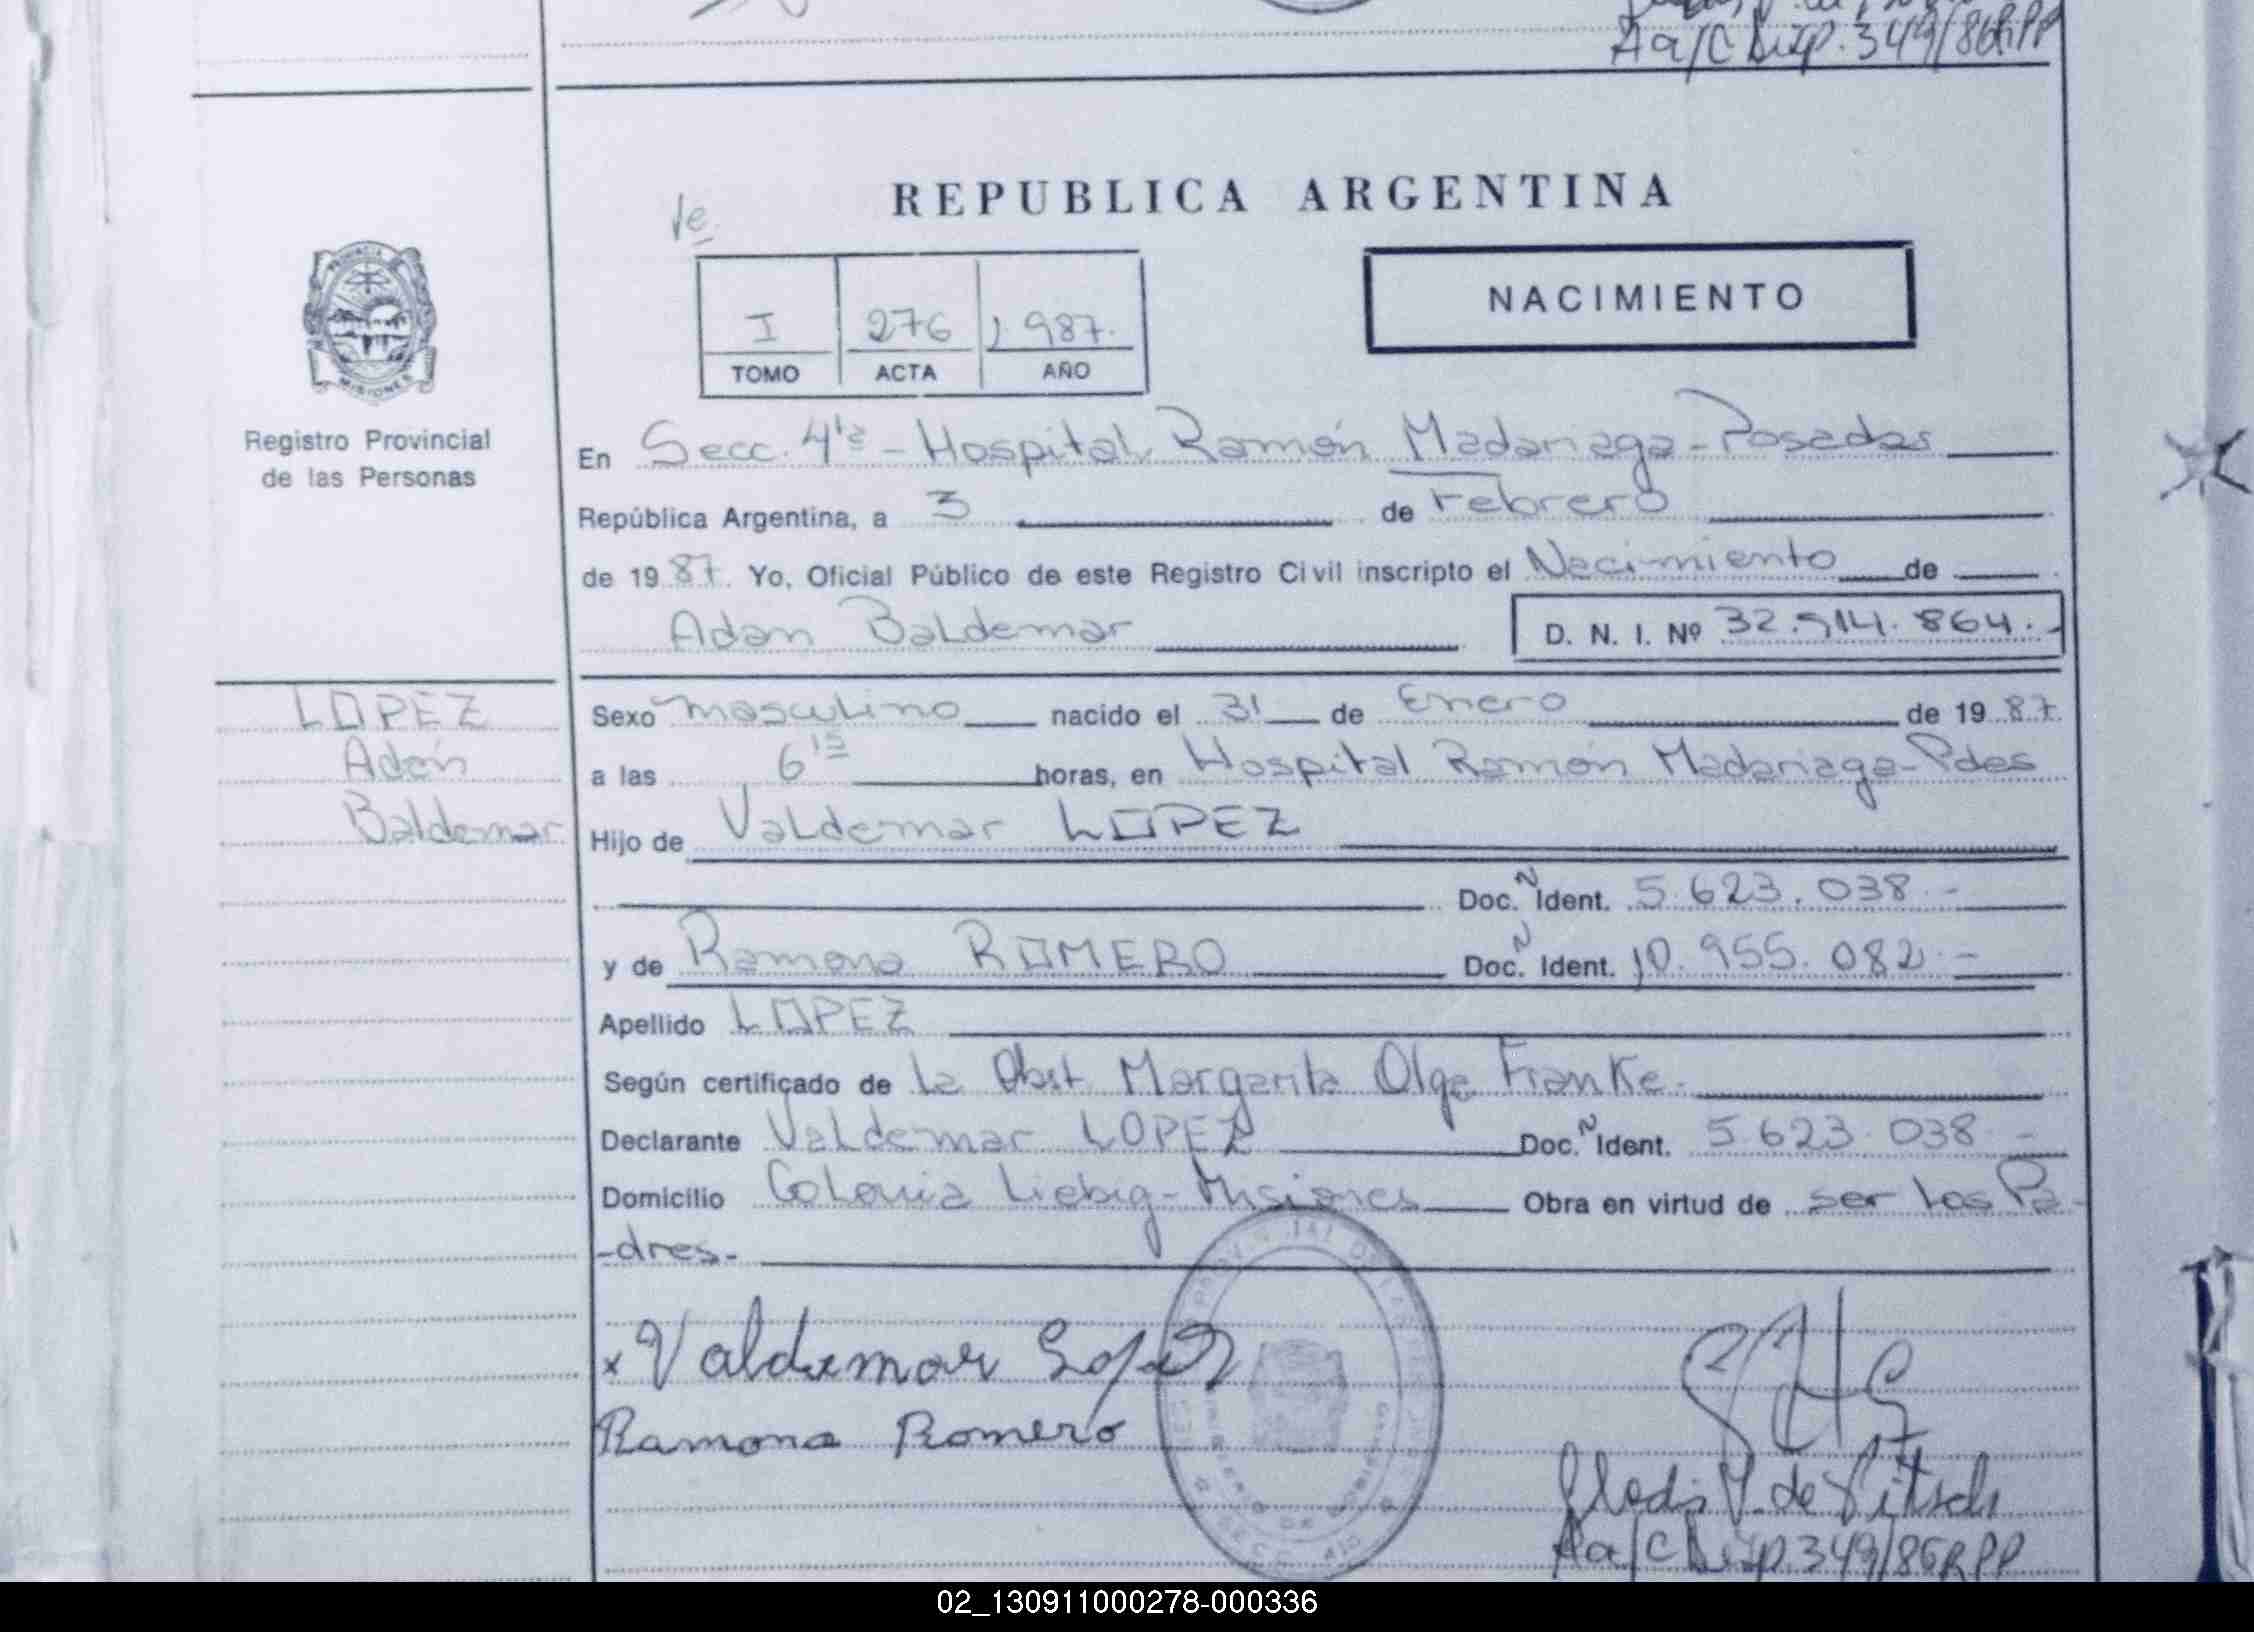 Aa/C Disp. 349/86 RPP
REPUBLICA ARGENTINA
NACIMIENTO
I 276 1.987.
TOMO ACTA AÑO
PROVINCIA
MISIONES
Registro Provincial
de las Personas
En Secc. 4ta - Hospital Ramón Madariaga - Posadas
República Argentina, a 3 de Febrero
de 1987. Yo, Oficial Público de este Registro Civil inscripto el Nacimiento de
Adan Baldemar D. N. I. Nº 32.514.864.-
LOPEZ
Adán
Baldemar
Sexo masculino nacido el 31 de Enero de 1987.
a las 6 15 horas, en Hospital Ramón Madariaga - Pdas
Hijo de Valdemar LOPEZ
Doc. N Ident. 5.623.038.-
y de Ramona ROMERO Doc. N Ident. 10.955.082.-
Apellido LOPEZ
Según certificado de la Obst. Margarita Olga Franke.
Declarante Valdemar LOPEZ Doc. N Ident. 5.623.038.-
Domicilio Colonia Liebig - Misiones Obra en virtud de ser los Pa-
-dres.-
x Valdemar Lopez
Ramona Romero
Aa/C Disp. 349/86 RPP
02_130911000278-000336